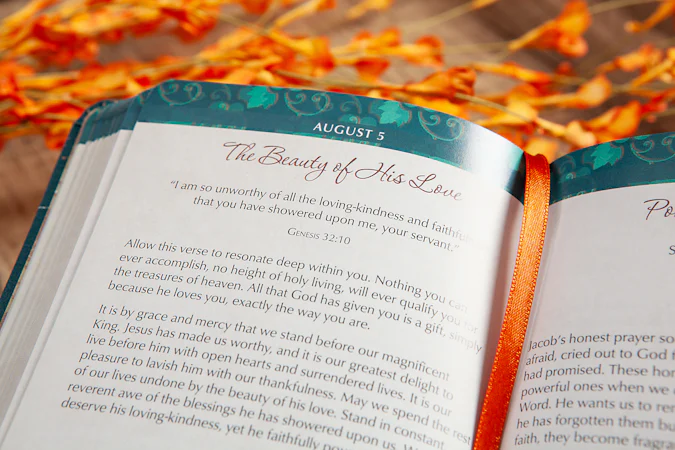 AUGUST 5
The Beauty of His Love
"I am so unworthy of all the loving-kindness and
that you have showered upon me, your servant."
GENESIS 32:10
Allow this verse to resonate deep within you. Nothing you can
ever accomplish, no height of holy living, will ever qualify you
the treasures of heaven. All that God has given you is a gift, simply
because he loves you, exactly the way you are.
It is by grace and mercy that we stand before our magnificent
King. Jesus has made us worthy, and it is our greatest delight to
live before him with open hearts and surrendered lives. It is our
pleasure to lavish him with our thankfulness. May we spend the rest
of our lives undone by the beauty of his love. Stand in constant
reverent awe of the blessings he has showered upon us. We
deserve his loving-kindness, yet he faithfully
Jacob's honest prayer
afraid, cried out to God
had promised. These
powerful ones when we
Word. He wants us to
he has forgotten them
faith, they become